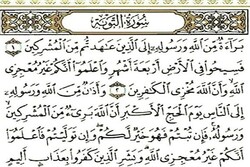 سُورَةُ التَّوْبَةِ
بَرَآءَةٌ مِّنَ ٱللَّهِ وَرَسُولِهِۦٓ إِلَى ٱلَّذِينَ عَٰهَدتُّم مِّنَ ٱلْمُشْرِكِينَ ١
فَسِيحُوا۟ فِى ٱلْأَرْضِ أَرْبَعَةَ أَشْهُرٍ وَٱعْلَمُوٓا۟ أَنَّكُمْ غَيْرُ مُعْجِزِى
ٱللَّهِ وَأَنَّ ٱللَّهَ مُخْزِى ٱلْكَٰفِرِينَ ٢ وَأَذَٰنٌ مِّنَ ٱللَّهِ وَرَسُولِهِۦٓ
إِلَى ٱلنَّاسِ يَوْمَ ٱلْحَجِّ ٱلْأَكْبَرِ أَنَّ ٱللَّهَ بَرِىٓءٌ مِّنَ ٱلْمُشْرِكِينَ
وَرَسُولُهُۥ فَإِن تُبْتُمْ فَهُوَ خَيْرٌ لَّكُمْ وَإِن تَوَلَّيْتُمْ فَٱعْلَمُوٓا۟
أَنَّكُمْ غَيْرُ مُعْجِزِى ٱللَّهِ وَبَشِّرِ ٱلَّذِينَ كَفَرُوا۟ بِعَذَابٍ أَلِيمٍ